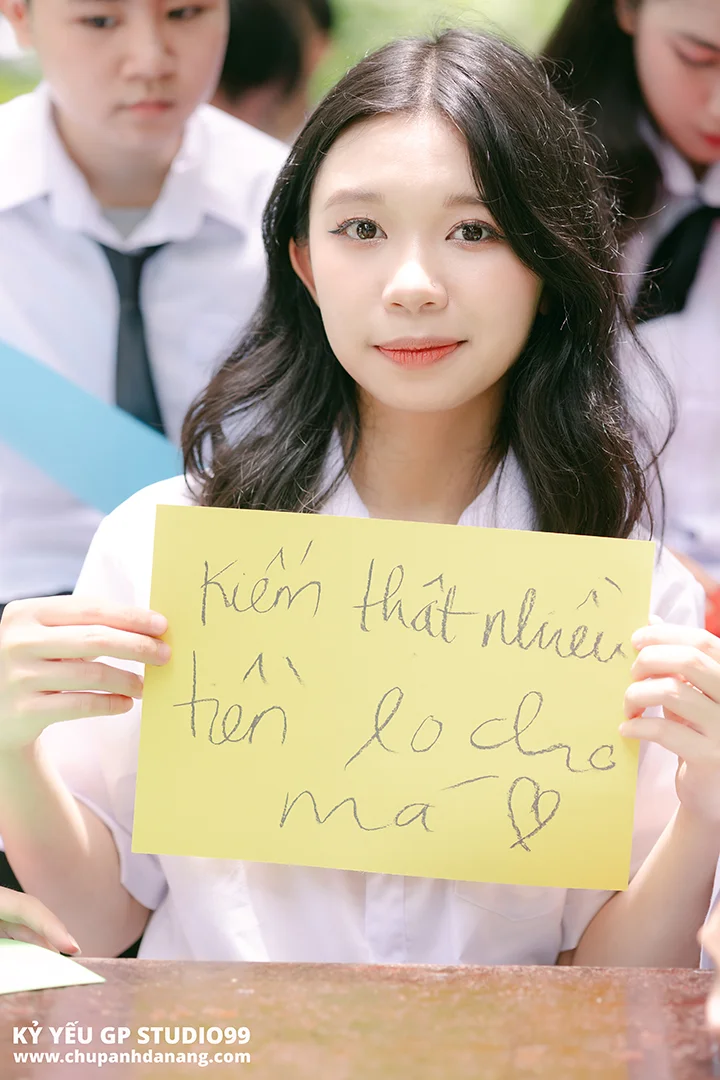 Kiếm thật nhiều
tiền lo cho
má
KỶ YẾU GP STUDIO99
www.chupanhdanang.com